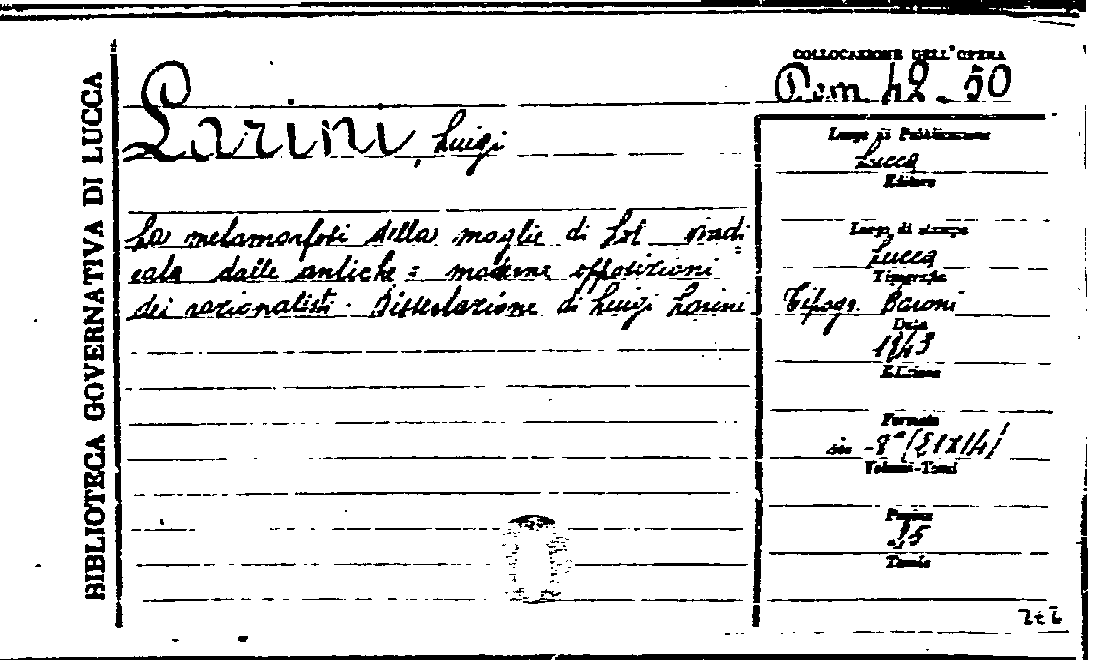 BIBLIOTECA GOVERNATIVA DI LUCCA
COLLOCAZIONE DELL'OPERA
42-50
Larini, Luigi
La metamorfosi della moglie di Lot vindi
cata dalle antiche = moderne opposizioni
dei razionalisti. Dissertazione di Luigi Larini
Luogo di Pubblicazione
Lucca
Editore
Luogo di stampa
Lucca
Tipografia
Tipogr. Baroni
Data
Edizione
Formato
in -8° (21X14)
Volumi-Tomi
Pagine
Tavole